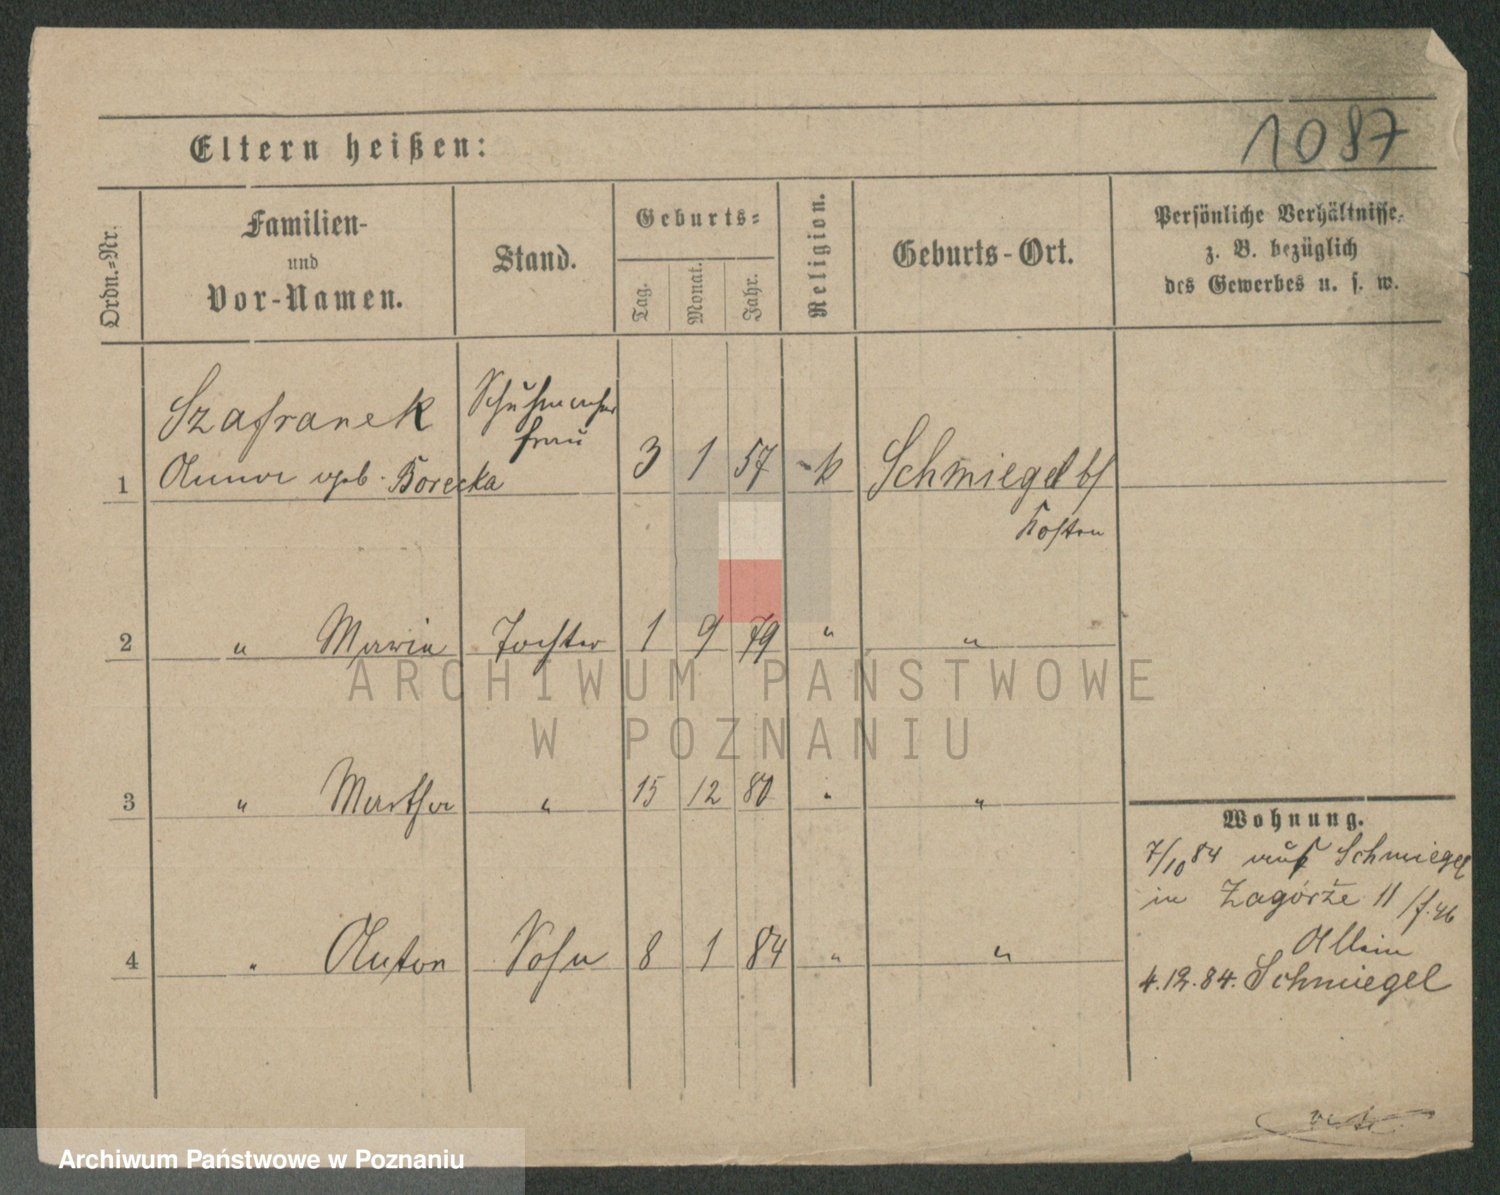 1087
Eltern heißen:
Ordn.=Nr.
Familien-
und
Vor-Namen.
Stand.
Geburts=
Tag.
Monat.
Jahr.
Religion.
Geburts-Ort.
Persönliche Verhältnisse,
z. B. bezüglich
des Gewerbes u. s. w.
Szafranek
Schuhmacher
frau
1 Anna geb. Borecka 3 1 57 k Schmiegel b/
Kosten
2 " Maria Tochter 1 9 79 " "
ARCHIWUM PAŃSTWOWE
W POZNANIU
3 " Martha " 15 12 80 " "
Wohnung.
7/10 84 aus Schmiegel
in Zagórze 11
Allein
4 " Anton Sohn 8 1 84 " "
4.12.84. Schmiegel
Archiwum Państwowe w Poznaniu